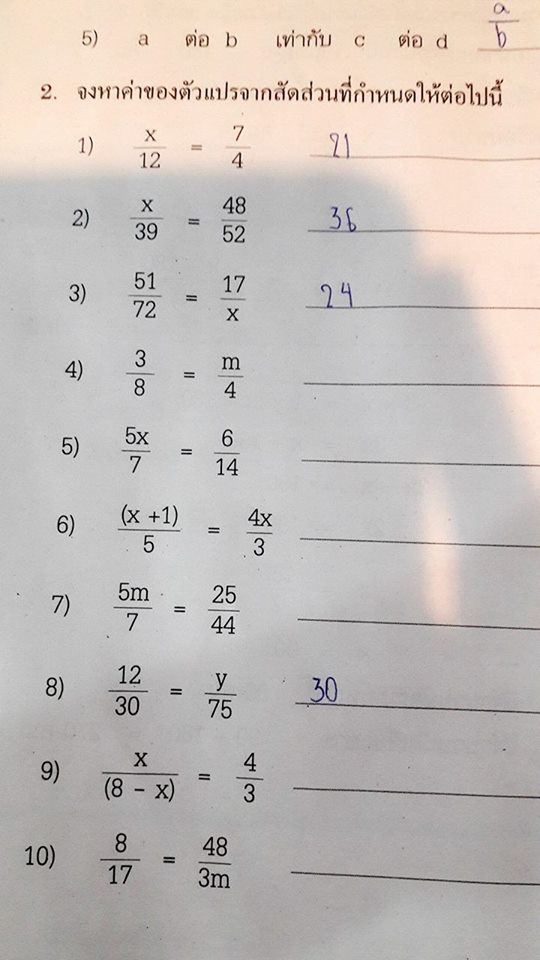 5) a ต่อ b เท่ากับ c ต่อ d a/b
2. จงหาค่าของตัวแปรจากสัดส่วนที่กำหนดให้ต่อไปนี้
1) x/12 = 7/4 21
2) x/39 = 48/52 36
3) 51/72 = 17/x 24
4) 3/8 = m/4
5) 5x/7 = 6/14
6) (x +1)/5 = 4x/3
7) 5m/7 = 25/44
8) 12/30 = y/75 30
9) x/(8 - x) = 4/3
10) 8/17 = 48/3m